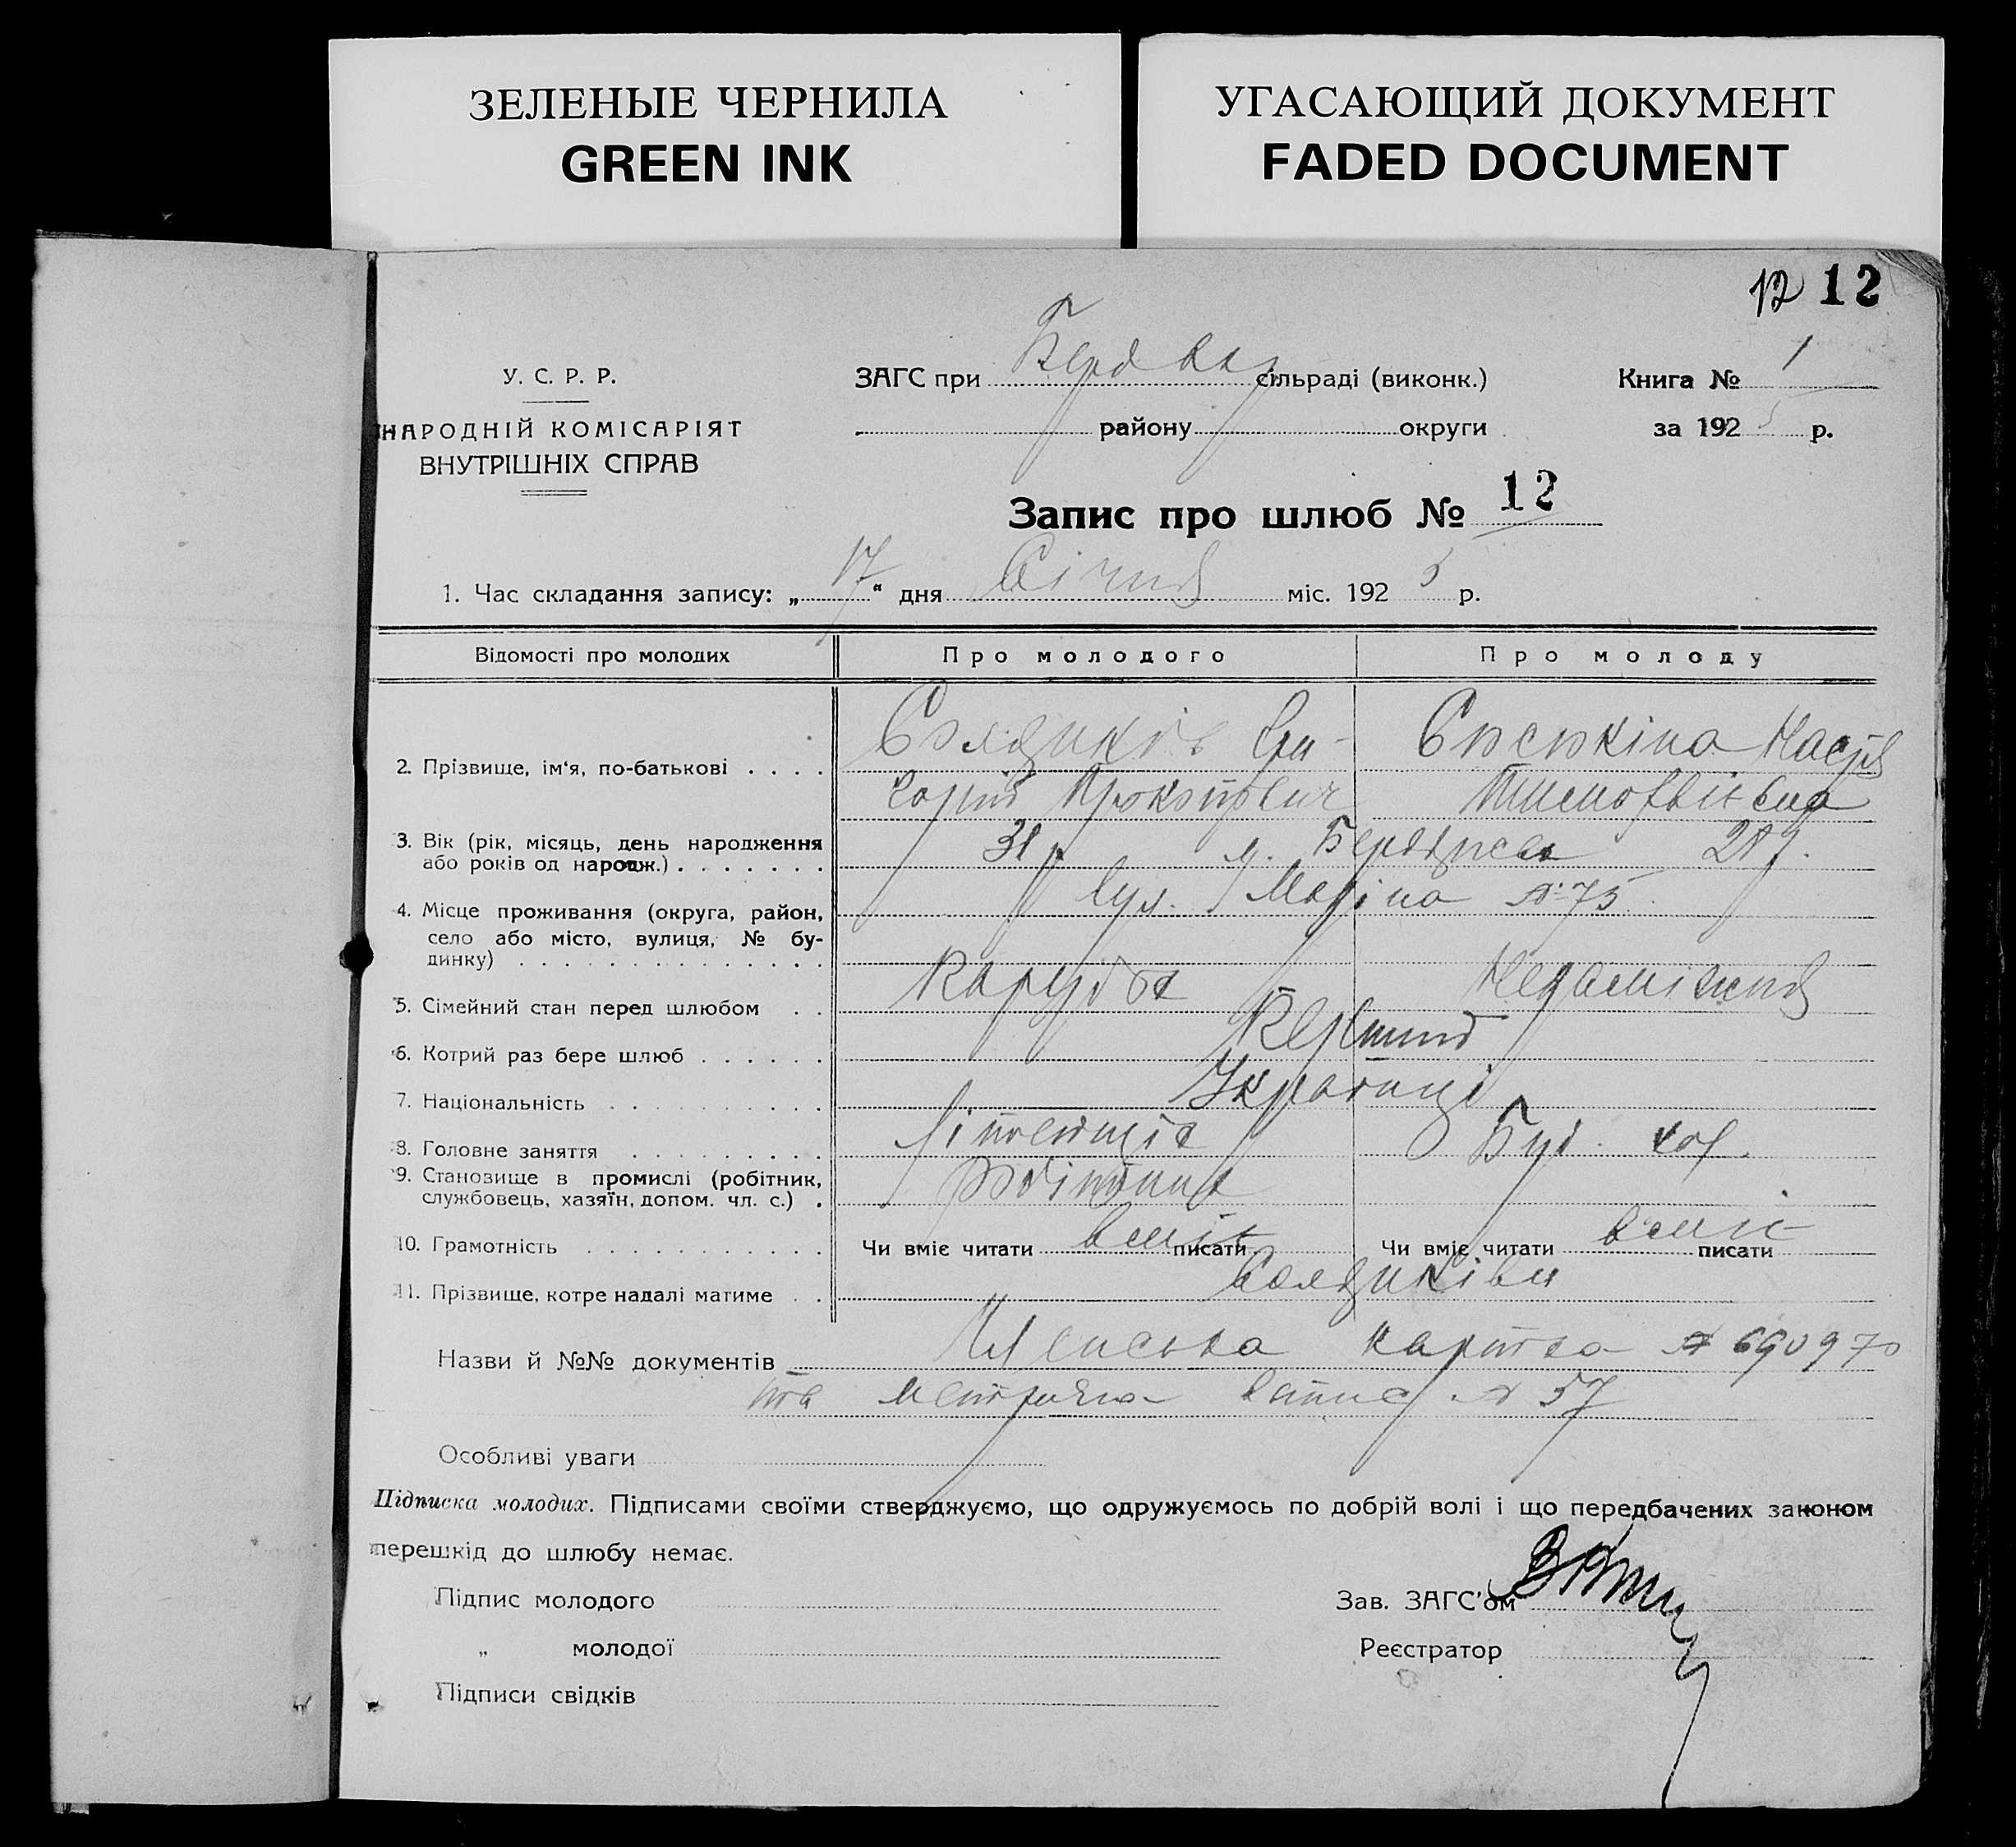 ЗЕЛЕНЫЕ ЧЕРНИЛА
GREEN INK
УГАСАЮЩИЙ ДОКУМЕНТ
FADED DOCUMENT
12 12
У. С. Р. Р.
НАРОДНІЙ КОМІСАРІЯТ
ВНУТРІШНІХ СПРАВ
ЗАГС при сільраді (виконк.)
району округи
Книга № 1
за 1925 р.
Запис про шлюб № 12
1. Час складання запису: „17“ дня Січня міс. 1925 р.
Відомості про молодих Про молодого Про молоду
2. Прізвище, ім‘я, по-батькові . . . . Гри- Настя
горій Прокопович Тимофвівна
3. Вік (рік, місяць, день народження
або років од народж.) . . . . . . . 31 р. м. 28 р.
4. Місце проживання (округа, район,
село або місто, вулиця, № бу-
динку) . . . . . . . . . . . . . . вул. № 75
5. Сімейний стан перед шлюбом . . Незаміжня
6. Котрий раз бере шлюб . . . . . . Перший
7. Національність . . . . . . . . . . Українці
8. Головне заняття . . . . . . . . .
9. Становище в промислі (робітник,
службовець, хазяїн, допом. чл. с.) . робітник
10. Грамотність . . . . . . . . . . . Чи вміє читати вміє писати Чи вміє читати вміє писати
11. Прізвище, котре надалі матиме . .
Назви й №№ документів Членська картка № 690970
та метрична № 57
Особливі уваги
Підписка молодих. Підписами своїми стверджуємо, що одружуємось по добрій волі і що передбачених законом
перешкід до шлюбу немає.
Підпис молодого
„ молодої
Підписи свідків
Зав. ЗАГС’ом
Реєстратор